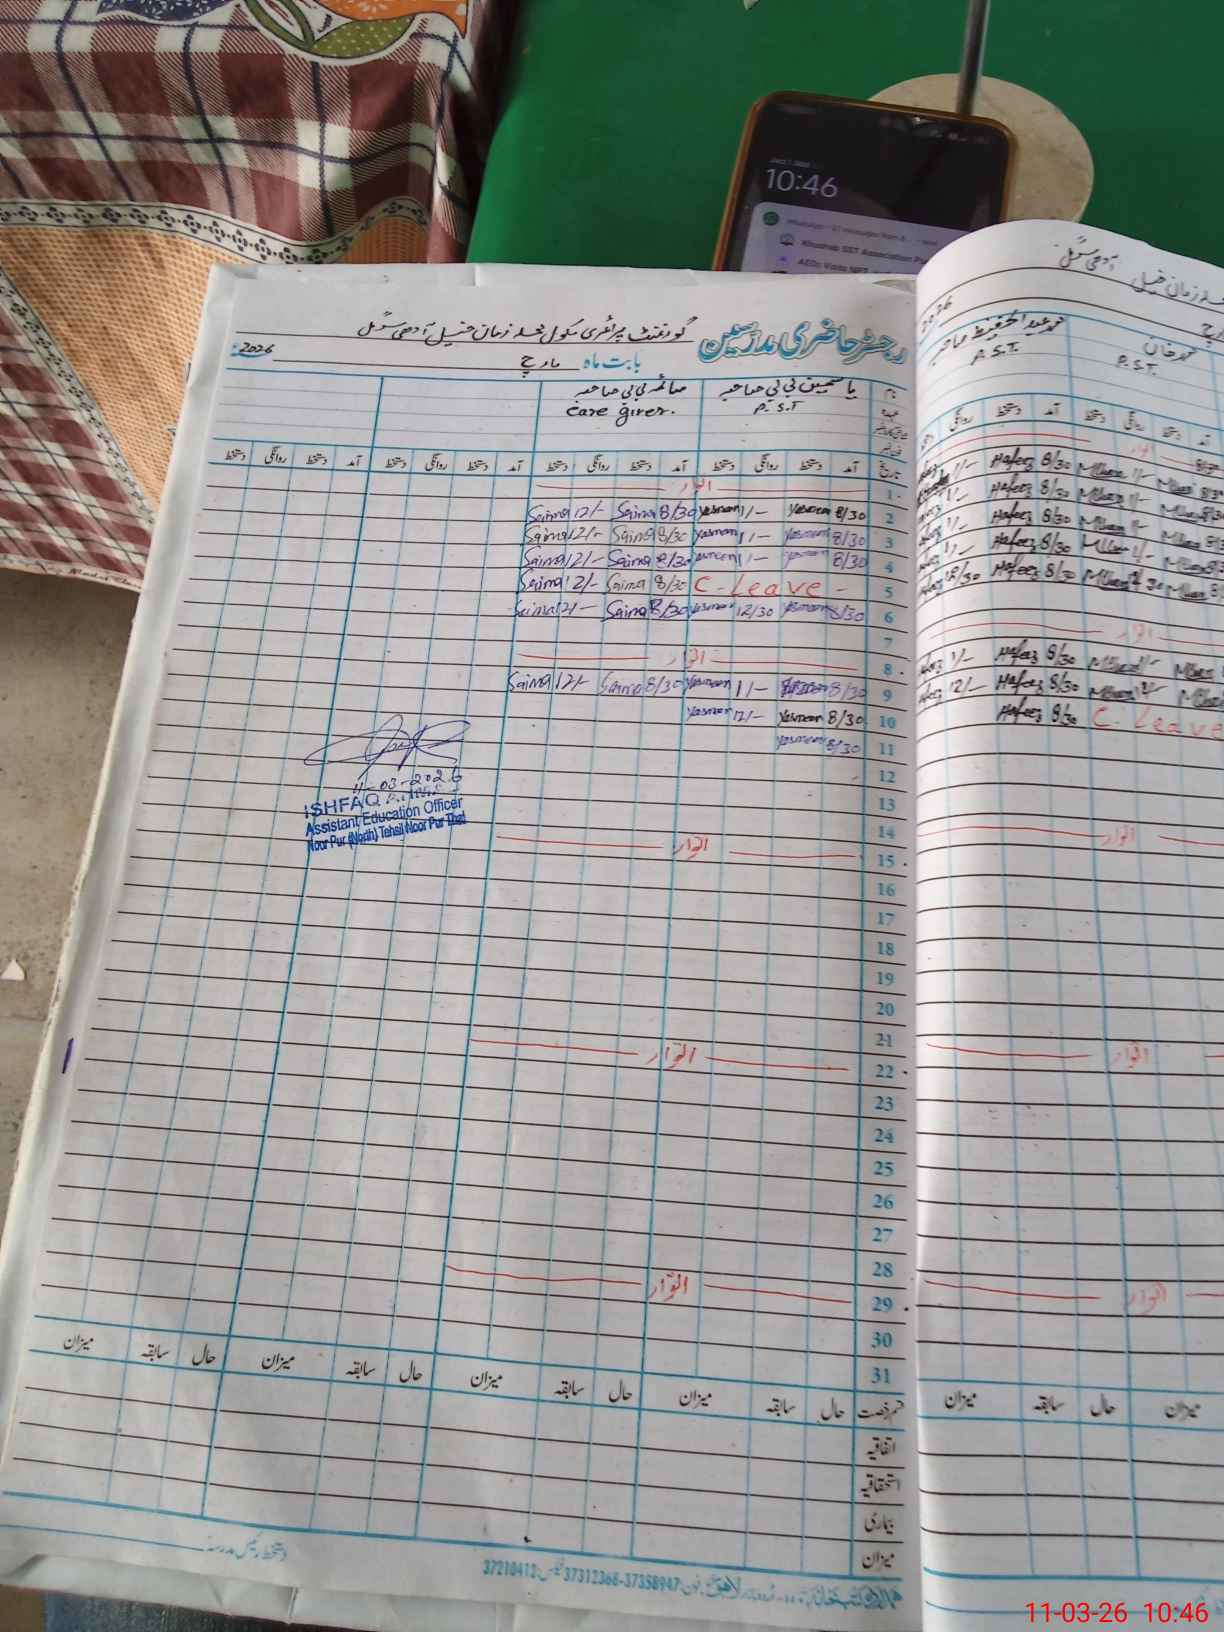 10:46
Khushab SST Association
رجسٹر حاضری مدرسین
گورنمنٹ پرائمری سکول
بابت ماہ مارچ 2026ء
نام یاسمین بی بی صاحبہ صائمہ بی بی صاحبہ
عہدہ P.S.T care giver.
تاریخ آمد دستخط روانگی دستخط آمد دستخط روانگی دستخط آمد دستخط روانگی دستخط آمد دستخط روانگی دستخط
1 اتوار
2 8/30 Yasmeen 1/- Yasmeen 8/30 Saima 12/- Saima
3 8/30 Yasmeen 1/- Yasmeen 8/30 Saima 12/- Saima
4 8/30 Yasmeen 1/- Yasmeen 8/30 Saima 12/- Saima
5 C-Leave - 8/30 Saima 12/- Saima
6 8/30 Yasmeen 12/30 Yasmeen 8/30 Saima 12/- Saima
7
8 اتوار
9 8/30 Yasmeen 1/- Yasmeen 8/30 Saima 12/- Saima
10 8/30 Yasmeen 12/- Yasmeen
11 8/30 Yasmeen
12
13
14
15 اتوار
16
17
18
19
20
21
22 اتوار
23
24
25
26
27
28
29 اتوار
30
31
قسم رخصت حال سابقہ میزان حال سابقہ میزان حال سابقہ میزان حال سابقہ میزان
اتفاقیہ
استحقاقیہ
بیماری
میزان
دستخط رئیس مدرسہ
37210412 فیکس: 37312368-37358947 فون:
11-03-2026
ISHFAQ
Assistant Education Officer
Noor Pur (North) Tehsil Noor Pur Thal
2026
محمد خان محمد عبدالحفیظ صاحب
P.S.T. P.S.T.
آمد دستخط روانگی دستخط آمد دستخط روانگی
اتوار
1/- 8/30 Hafeez 1/-
1/- 8/30 Hafeez 1/-
8/30 Hafeez 1/-
1/- 8/30 Hafeez 1/-
8/30 Hafeez 12/30
اتوار
8/30 Hafeez 1/-
8/30 Hafeez 12/-
C-Leave 8/30 Hafeez
اتوار
اتوار
اتوار
میزان حال سابقہ میزان
11-03-26 10:46